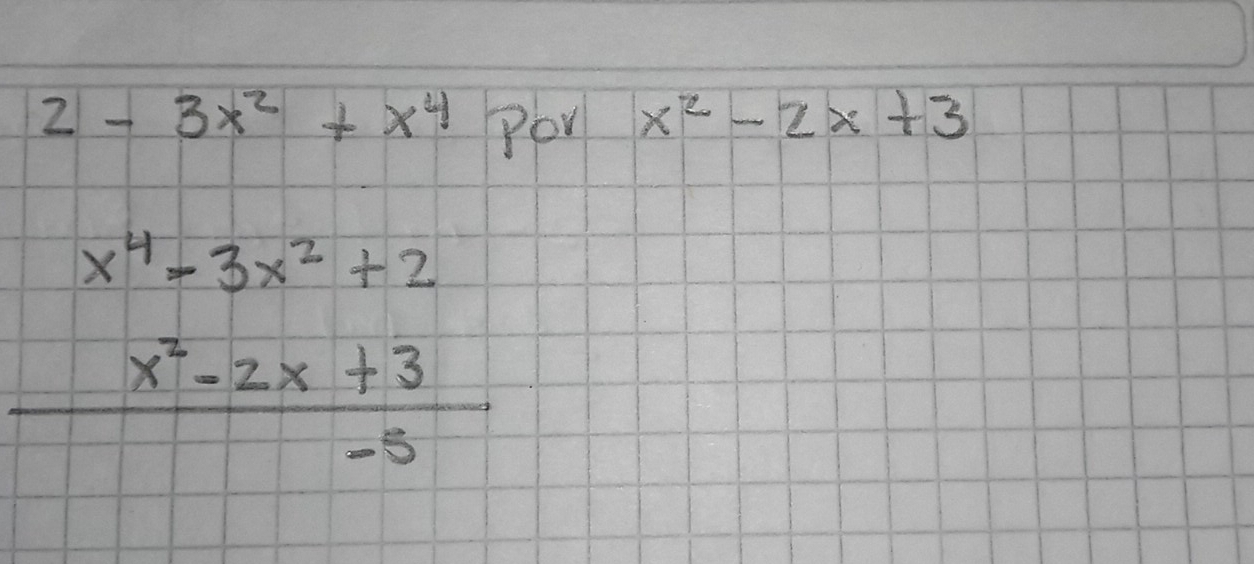 2 - 3x² + x⁴ por x² - 2x + 3
x⁴ - 3x² + 2
x² - 2x + 3
-5